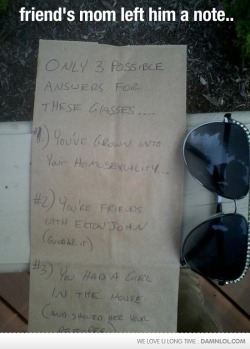 friend's mom left him a note..
ONLY 3 POSSIBLE
ANSWERS FOR
THESE GLASSES....
#1) YOU'VE GROWN INTO
YOUR HOMOSEXUALITY...
#2) YOU'RE FRIENDS
WITH ELTON JOHN
#3) YOU HAD A GIRL
IN THE HOUSE
(AND SHOWED HER YOUR
WE LOVE U LONG TIME : DAMNLOL.COM